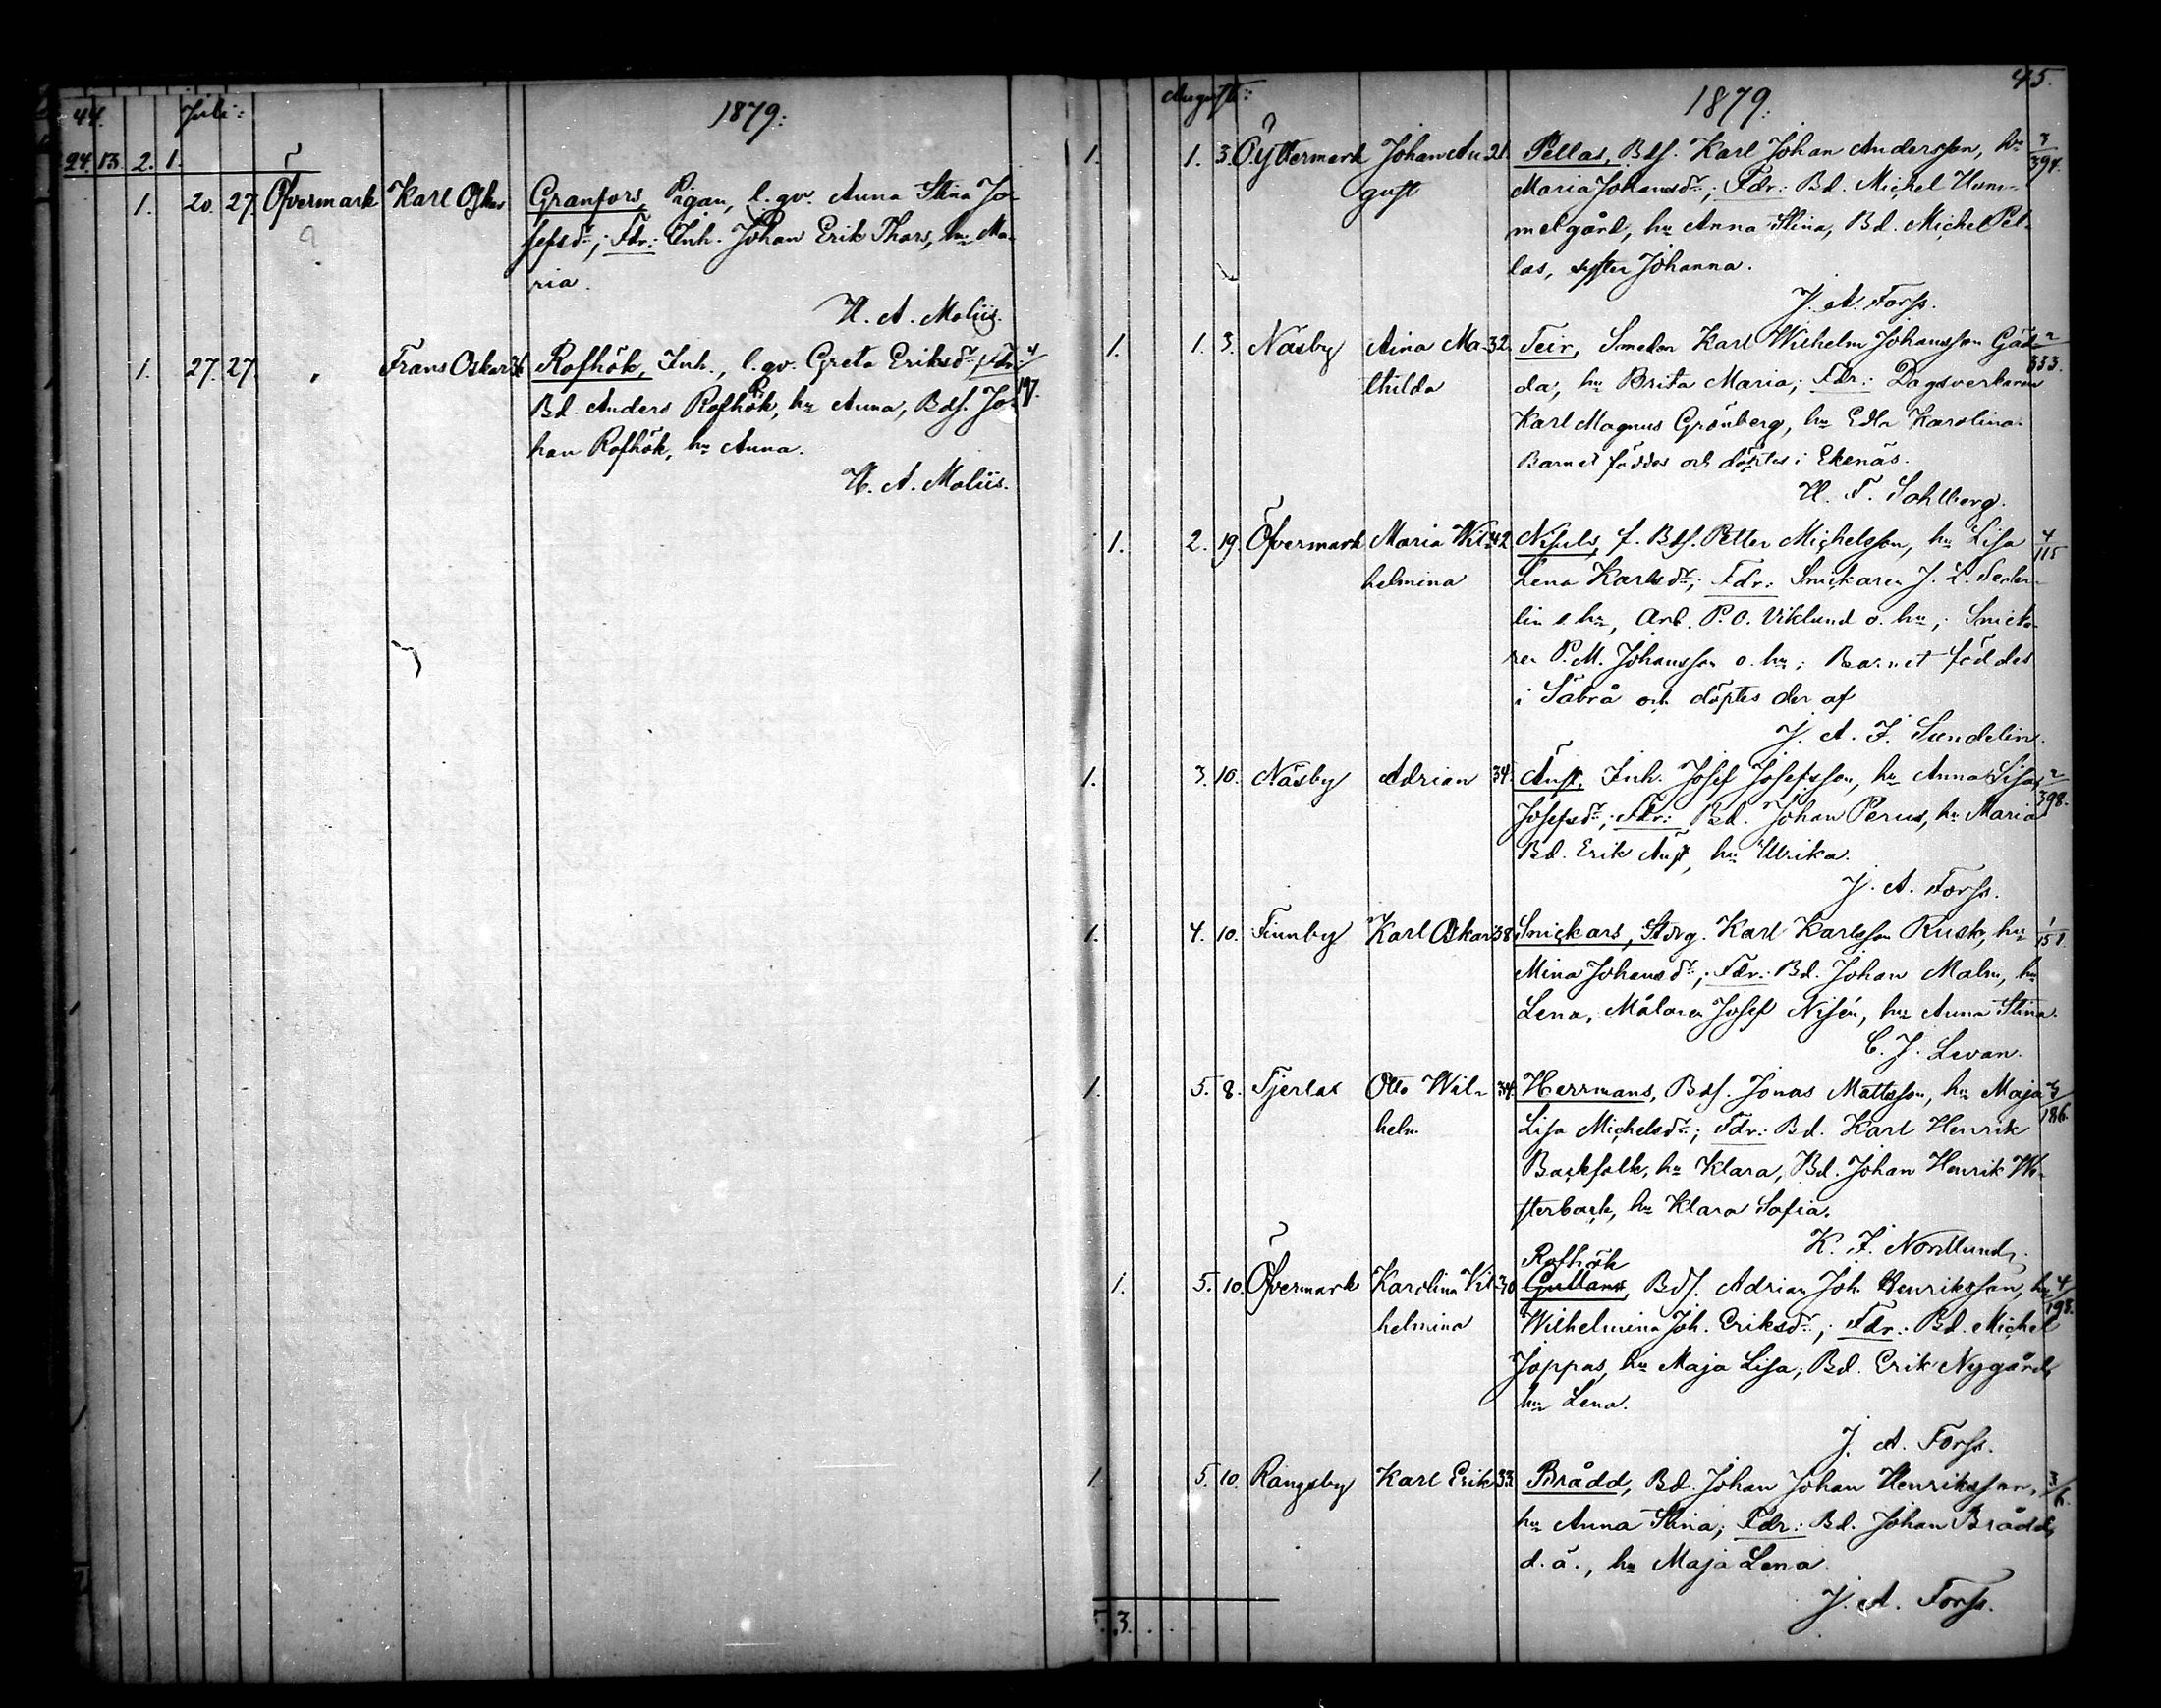 44. Juli: 1879:
24. 13. 2. 1.
1. 20. 27. Öfvermark Karl Oskar Granfors, Pigan, l. gv. Anna Stina Jo-
sefsdr; Fdr: Inh. Johan Erik Thors, hu Ma-
ria.
H. A. Moliis.
1. 27. 27. " Frans Oskar 36 Rofhök, Inh., l. gv. Greta Eriksdr; Fdr: 4/197.
Bd. Anders Rofhök, hu Anna, Bdf. Jo-
han Rofhök, hu Anna.
H. A. Moliis.
Augusti: 1879. 45.
1. 1. 3. Öyttermark Johan Au- 21. Pellas, Bdf. Karl Johan Andersson, hu 3/394.
gust Maria Johansdr; Fdr: Bd. Michel Hum-
melgård, hu Anna Stina, Bd. Michel Pel-
las, syster Johanna.
J. A. Forss.
1. 1. 3. Näsby Aina Ma- 32. Teir, Smeden Karl Wilhelm Johansson Gäd- 2/333.
thilda da, hu Brita Maria; Fdr: Dagsverkaren
Karl Magnus Grönberg, hu Edla Karolina.
Barnet föddes och döptes i Ekenäs.
H. F. Sohlberg.
1. 2. 19. Öfvermark Maria Wil- 42 Nisuls, f. Bdf. Petter Michelsson, hu Lisa 4/115
helmina Lena Karlsdr; Fdr: Snickaren J. L. Seder-
lin o. hu, Arb. P. O. Viklund o. hu, Snicka-
ren P. M. Johansson o. hu; Barnet föddes
i Säbrå och döptes der af
J. A. F. Sundelin.
1. 3. 10. Näsby Adrian 34. Aust, Inh. Josef Josefsson, hu Anna Lisa 2/398.
Josefsdr; Fdr: Bd. Johan Perus, hu Maria
Bd. Erik Aust, hu Ulrika.
J. A. Forss.
1. 4. 10. Finnby Karl Oskar 38. Snickars, Storg. Karl Karlsson Rusk, hu 1/151
Mina Johansdr; Fdr: Bd. Johan Malm, hu
Lena, Målaren Josef Nisén, hu Anna Stina.
C. J. Levan.
1. 5. 8. Tjerlax Otto Wil- 34. Herrmans, Bdf. Jonas Mattsson, hu Maja 3/186.
helm Lisa Michelsdr; Fdr: Bd. Karl Henrik
Backfolk, hu Klara, Bd. Johan Henrik We-
sterback, hu Klara Sofia.
K. F. Nordlund.
Rofhök
1. 5. 10. Öfvermark Karolina Vil- 30 Gullans, Bdf. Adrian Joh. Henriksson, hu 4/198.
helmina Wilhelmina Joh. Eriksdr; Fdr: Bd. Michel
Joppas, hu Maja Lisa; Bd. Erik Nygård,
hu Lena.
J. A. Forss.
1. 5. 10. Rangsby Karl Erik 33. Brådd, Bd. Johan Johan Henriksson, 3/6.
hu Anna Stina; Fdr: Bd. Johan Brådd,
d. ä., hu Maja Lena.
J. A. Forss.
5. 3.